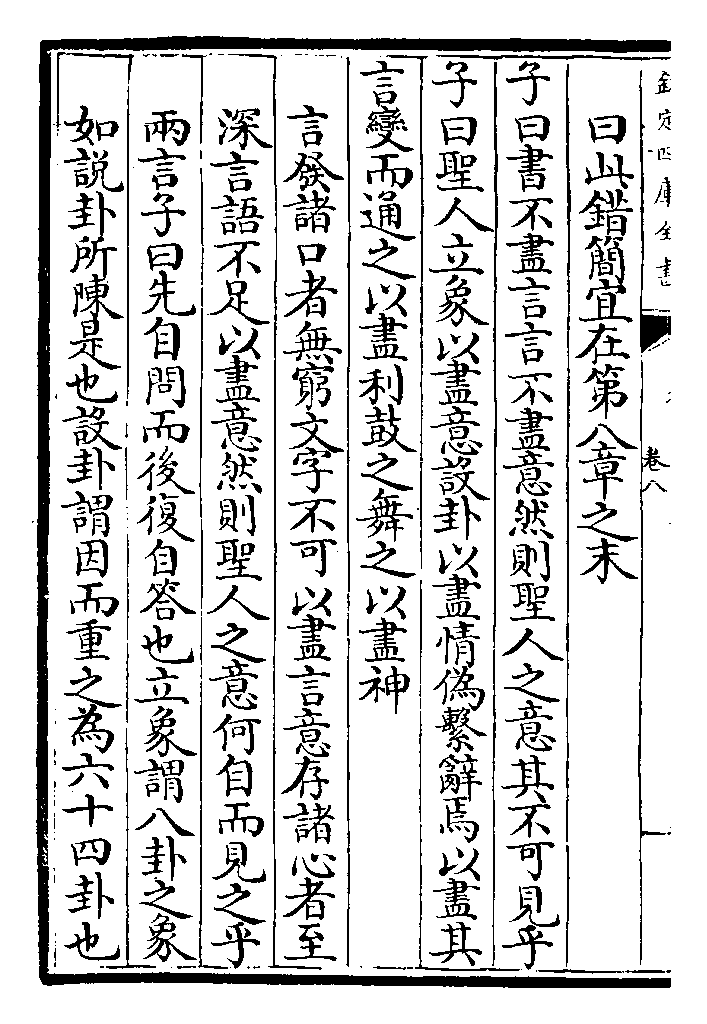 欽定四庫全書
卷八
曰此錯簡宜在第八章之末
子曰書不盡言言不盡意然則聖人之意其不可見乎
子曰聖人立象以盡意設卦以盡情偽繫辭焉以盡其
言變而通之以盡利鼓之舞之以盡神
言發諸口者無窮文字不可以盡言意存諸心者至
深言語不足以盡意然則聖人之意何自而見之乎
兩言子曰先自問而後復自答也立象謂八卦之象
如說卦所陳是也設卦謂因而重之為六十四卦也